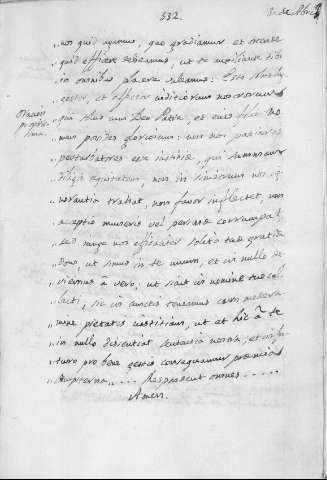 532.
30 de Abril
„ nos quid agamus, quo gradiamur et ostende
„ quid efficere debeamus, ut te auxiliante tibi
„ in omnibus placere valeamus: Esto
„ gestor, et effector iudiciorum nostrorum
„ qui solus cum Deo Patre, et eius
„ men possides gloriosum: non nos patiaris
„ perturbatores esse iustitiae, qui summam
„ diligis aequitatem, non in sinistrum nos ig
„ norantia trahat, non favor inflectat, non
„ acceptio muneris vel personae corrumpat
„ sed iunge nos efficaciter solito tuae gratiae
„ Dono, ut simus in te unum, et in nullo de
„ viemus à vero, ut sicut in nomine tuo col
„ lecti, sic in cunctis teneamus cum modera
„ mine pietatis iustitiam, ut et hîc à te
„ in nullo dissentiat sententia nostra, et in fu
„ turo pro bene gestis consequamur praemia
„ sempiterna..... Respondent omnes.....
Amen.